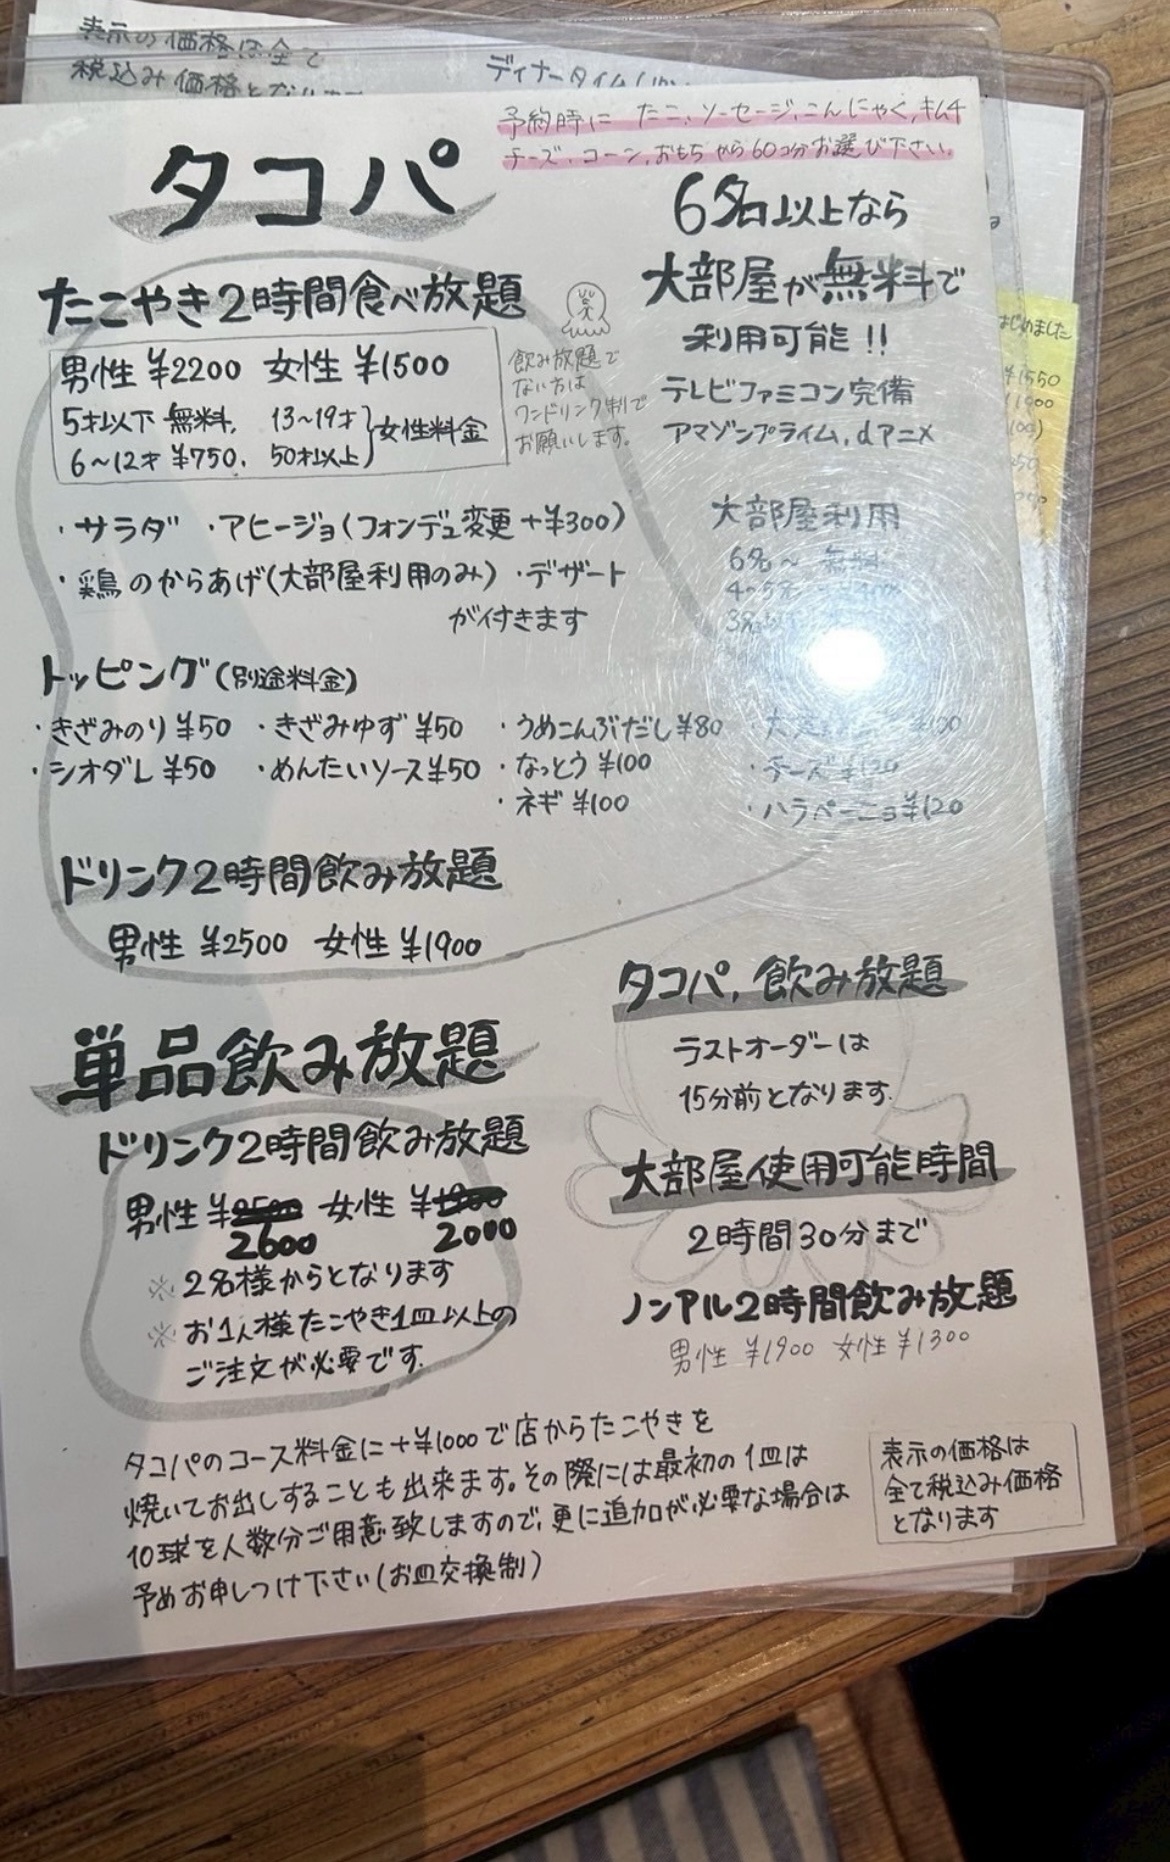 表示の価格は全て
税込み価格となります
ディナータイム
予約時に たこ、ソーセージ、こんにゃく、キムチ
チーズ、コーン、おもちから60コ分お選び下さい。
タコパ
たこやき2時間食べ放題
男性 ¥2200 女性 ¥1500
5才以下 無料, 13〜19才
6〜12才 ¥750, 50才以上
女性料金
飲み放題で
ない方は
ワンドリンク制で
お願いします。
6名以上なら
大部屋が無料で
利用可能!!
テレビファミコン完備
アマゾンプライム, dアニメ
はじめました
¥1550
・サラダ ・アヒージョ(フォンデュ変更+¥300)
・鶏のからあげ(大部屋利用のみ) ・デザート
が付きます
大部屋利用
6名〜 無料
トッピング(別途料金)
・きざみのり ¥50 ・きざみゆず ¥50 ・うめこんぶだし ¥80
・シオダレ ¥50 ・めんたいソース ¥50 ・なっとう ¥100 ・チーズ ¥120
・ネギ ¥100 ・ハラペーニョ ¥120
ドリンク2時間飲み放題
男性 ¥2500 女性 ¥1900
単品飲み放題
ドリンク2時間飲み放題
男性 ¥2500 女性 ¥1900
2600 2000
※2名様からとなります
※お1人様たこやき1皿以上の
ご注文が必要です.
タコパ, 飲み放題
ラストオーダーは
15分前となります.
大部屋使用可能時間
2時間30分まで
ノンアル2時間飲み放題
男性 ¥1900 女性 ¥1300
タコパのコース料金に+¥1000で店からたこやきを
焼いてお出しすることも出来ます。その際には最初の1皿は
10球を人数分ご用意致しますので、更に追加が必要な場合は
予めお申しつけ下さい(お皿交換制)
表示の価格は
全て税込み価格
となります